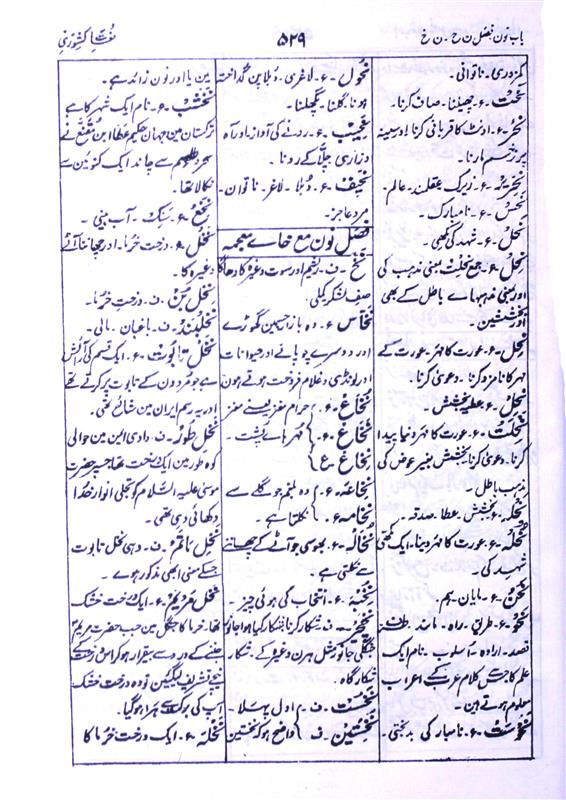 باب نون فصل ن ح - ن خ
۵۲۹
لغات کشوری
کمزوری - ناتوانی -
نحت - ع - چھیلنا - صاف کرنا -
نحر - ع - اونٹ کا قربانی کرنا اور سینہ
پر زخم مارنا -
نحریر - ع - زیرک عقلمند - عالم -
نحس - ع - نامبارک -
نحل - ع - شہد کی مکھی -
نحل - ع - جمع نحلت بمعنی مذہب کی
اور بمعنی مذہبہاے باطل کے بھی
اور بخششین -
نحل - ع - عورت کا مہر - عورت کے
مہر کا نامزد کرنا - دعویٰ کرنا -
نحل - ع - عطیہ بخشش -
نحلت - ع - عورت کا مہر دنیا پیدا
کرنا - دعویٰ کرنا بخشش بغیر عوض کی
مذہب باطل -
نحلہ - ع - بخشش - عطا - صدقہ -
نحلہ - ع - عورت کا مہر دینا - ایک مکھی
شہد کی -
نحن - ع - مایان - ہم -
نحو - ع - طریق - راہ - مانند - طرف
قصد - ارادہ - اسلوب - نام ایک
علم کا جس سے کلام عرب کے اعراب
معلوم ہوتے ہین -
نحوست - ع - نامبارکی - بدبختی -
نحول - ع - لاغری - دُبلا پن گداخت
ہونا - گلنا - پگھلنا -
نحیب - ع - رونے کی آواز اور آہ
و زاری چلا کے رونا -
نحیف - ع - دُبلا - لاغر - ناتوان -
مرد عاجز -
فصل نون مع خاے معجمہ
نخ - ف - ریشم اور سوت وغیرہ کا دھاگا
صف لشکر کی -
نخاس - ع - وہ بازار جسمین گھوڑے
اور دوسرے چوپائے اور حیوانات
اور لونڈی و غلام فروخت ہوتے ہون
نخاع - ع - حرام مغز یعنے مغز
نخاع - ع - مہرہاے پشت -
نخاع - ع
نخاعہ - ع - وہ بلغم جو گلے سے
نخامہ - ع - نکلتا ہے -
نخالہ - ع - بھوسی جو آٹے کے چھاننے
سے نکلتی ہے -
نخبہ - ع - انتخاب کی ہوئی چیز -
نخچیر - ف - شکار کرنا شکار کیا ہوا جانور
جنگلی جانور مثل ہرن وغیرہ کے - شکار
شکار گاہ -
نخست - ف - اول پہلا -
نخستین - ف - واضح ہو کہ نخستین
مین یا اور نون زائد ہے -
نخشب - ع - نام ایک شہر کا ہے
ترکستان مین جہان حکیم عطا ابن مقنع نے
سحر و طلسم سے چاند ایک کنوین سے
نکالا تھا -
نخع - ع - آب بینی -
نخل - ع - درخت خرما - اور چھاننا آٹے
وغیرہ کا -
نخل بُن - ف - درخت خرما -
نخلبند - ف - باغبان - مالی -
نخل تابوت - ع - ایک قسم کی آرائش
ہے جو مُردون کے تابوت پر کرتے تھے
اور یہ رسم ایران مین شائع تھی -
نخل طور - ف - وادی ایمن مین حوالی
کوہ طور مین ایک درخت تھا جسپر حضرت
موسیٰ علیہ السلام کو تجلی انوار خدا
دکھائی دی تھی -
نخل ماتم - ف - وہی نخل تابوت
جسکے معنی ابھی مذکور ہوے -
نخل مریم - ع - ایک درخت خشک
تھا خرما کا جنگل مین جب حضرت مریم
جننے کے درد سے بیقرار ہو کر اس درخت کے
نیچے تشریف لیگئین تو وہ درخت خشک
آپ کی برکت سے ہرا ہو گیا -
نخلہ - ع - ایک درخت خرما کا